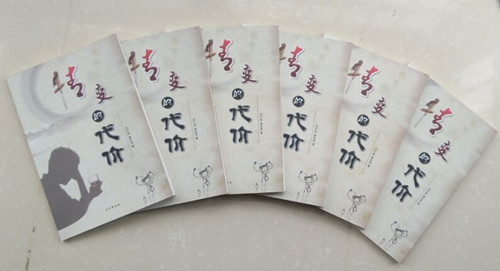 情变的代价
情变的代价
情变的代价
情变的代价
情变的代价
情变的代价